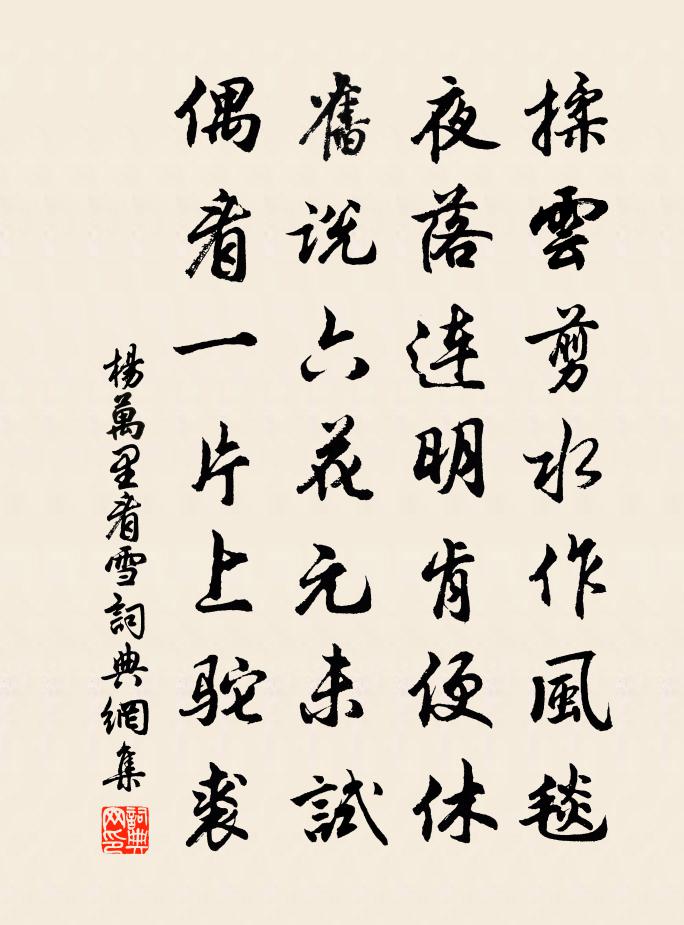 揉雲剪水作風毯
夜落連明肯便休
舊説六花元未試
偶看一片上駝裘
楊萬里看雪詞典網集
詞典
网印